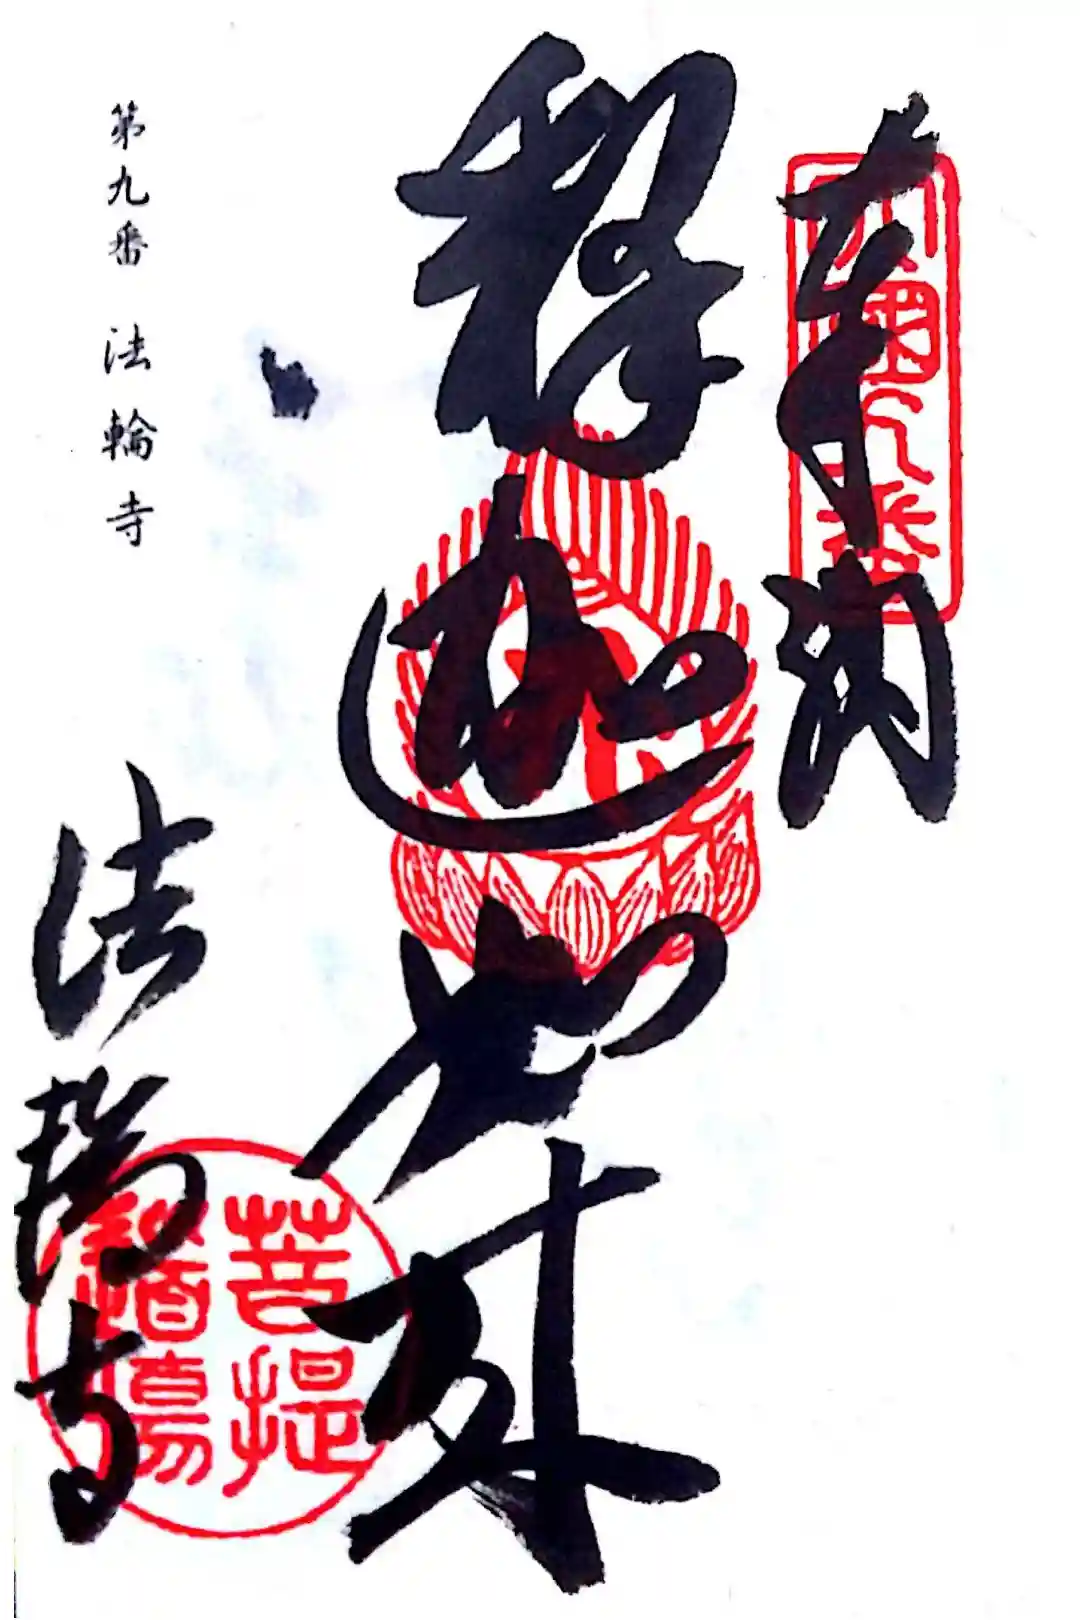 奉納
四国九番
釈迦如来
菩提道場
法輪寺
第九番 法輪寺